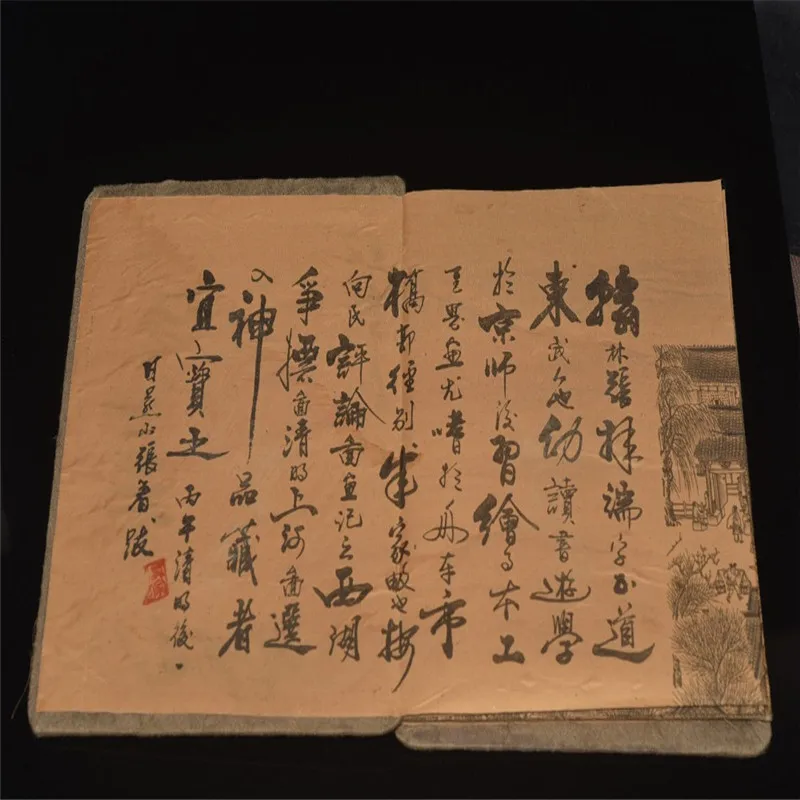 翰林張擇端字正道
東武人也幼讀書遊學
於京師後習繪事本工
其界畫尤嗜於舟車市
橋郭徑別成家數也按
向氏評論圖畫記云西湖
爭標圖清明上河圖選
入神品藏者
宜寶之 丙午清明後
日燕山張著跋